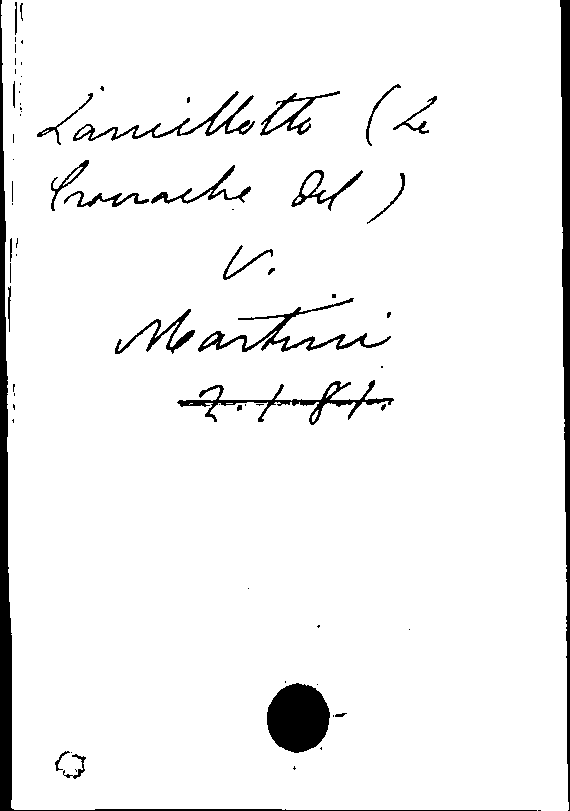 Lancillotto (Le
Cronache del)
V.
Martini
2.1.81.